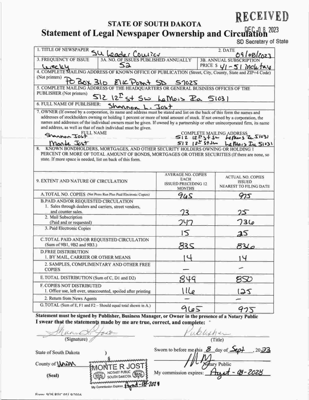 STATE OF SOUTH DAKOTA
Statement of Legal Newspaper Ownership and Circulation
RECEIVED
DEC 08 2023
SD Secretary of State
1. TITLE OF NEWSPAPER
SU Leader Courier
2. DATE
09/08/2023
3. FREQUENCY OF ISSUE
Weekly
3A. NO. OF ISSUES PUBLISHED ANNUALLY
52
3B. ANNUAL SUBSCRIPTION
PRICE $
4. COMPLETE MAILING ADDRESS OF KNOWN OFFICE OF PUBLICATION (Street, City, County, State and ZIP+4 Code)
(Not printers)
PO Box 310 Elk Point SD 57025
5. COMPLETE MAILING ADDRESS OF THE HEADQUARTERS OR GENERAL BUSINESS OFFICES OF THE
PUBLISHER (Not printer)
512 12th St SW LeMars Ia 51031
6. FULL NAME OF PUBLISHER:
Shannon L. Jost
7. OWNER (If owned by a corporation, its name and address must be stated and list on the back of this form the names and
addresses of stockholders owning or holding 1 percent or more of total amount of stock. If not owned by a corporation, the
names and addresses of the individual owners must be given. If owned by a partnership or other unincorporated firm, its name
and address, as well as that of each individual must be given.
FULL NAME
COMPLETE MAILING ADDRESS
Shannon Jost
512 12th St SW LeMars Ia 51031
Monte Jost
512 12th St SW LeMars Ia 51031
8. KNOWN BONDHOLDERS, MORTGAGES, AND OTHER SECURITY HOLDERS OWNING OR HOLDING 1
PERCENT OR MORE OF TOTAL AMOUNT OF BONDS, MORTGAGES OR OTHER SECURITIES (If there are none, so
state. If more space is needed, list on back of this form.
9. EXTENT AND NATURE OF CIRCULATION
AVERAGE NO. COPIES
EACH
ISSUED PRECEDING 12
MONTHS
ACTUAL NO. COPIES
ISSUED
NEAREST TO FILING DATE
A. TOTAL NO. COPIES
965
975
B. PAID AND/OR REQUESTED CIRCULATION
1. Sales through dealers and carriers, street vendors,
and counter sales.
73
75
2. Mail Subscription
(Paid and/or requested)
747
736
3. Paid Electronic Copies
15
25
C. TOTAL PAID AND/OR REQUESTED CIRCULATION
(Sum of 9B1, 9B2 and 9B3.)
835
836
D. FREE DISTRIBUTION
1. BY MAIL, CARRIER OR OTHER MEANS
14
14
2. SAMPLES, COMPLIMENTARY AND OTHER FREE
COPIES
E. TOTAL DISTRIBUTION (Sum of C, D1 and D2)
849
850
F. COPIES NOT DISTRIBUTED
1. Office use, left over, unaccounted, spoiled after printing
116
125
2. Return from News Agents
G. TOTAL (Sum of E, F1 and F2 - Should equal total shown in A.)
965
975
Statement must be signed by Publisher, Business Manager, or Owner in the presence of a Notary Public
I swear that the statements made by me are true, correct, and complete:
Publisher
(Signature)
(Title)
State of South Dakota )
Sworn to before me this 8 day of Sept, 2023
County of Union
(Seal)
MONTE R JOST
NOTARY PUBLIC
SOUTH DAKOTA
My commission expires: August-08-2028
My Commission Expires August-08-2028